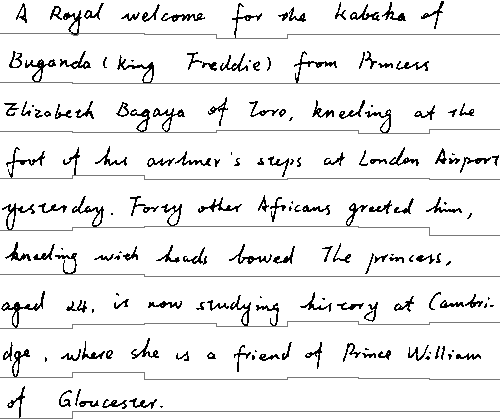 A Royal welcome for the Kabaka of
Buganda (King Freddie) from Princess
Elizabeth Bagaya of Toro, kneeling at the
foot of his airliner's steps at London Airport
yesterday. Forty other Africans greeted him,
kneeling with heads bowed The princess,
aged 24, is now studying history at Cambri-
dge, where she is a friend of Prince William
of Gloucester.